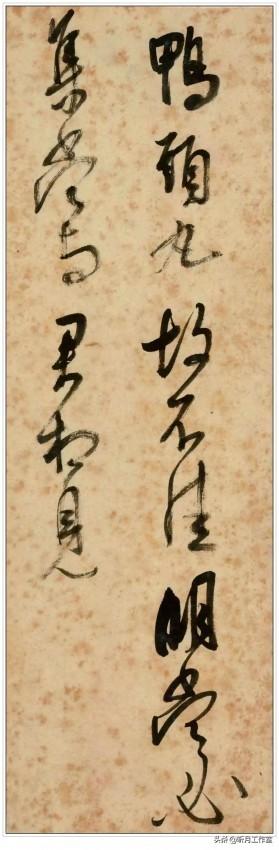 鴨頭丸故不佳明當必
集當與君相見
头条@听月工作室